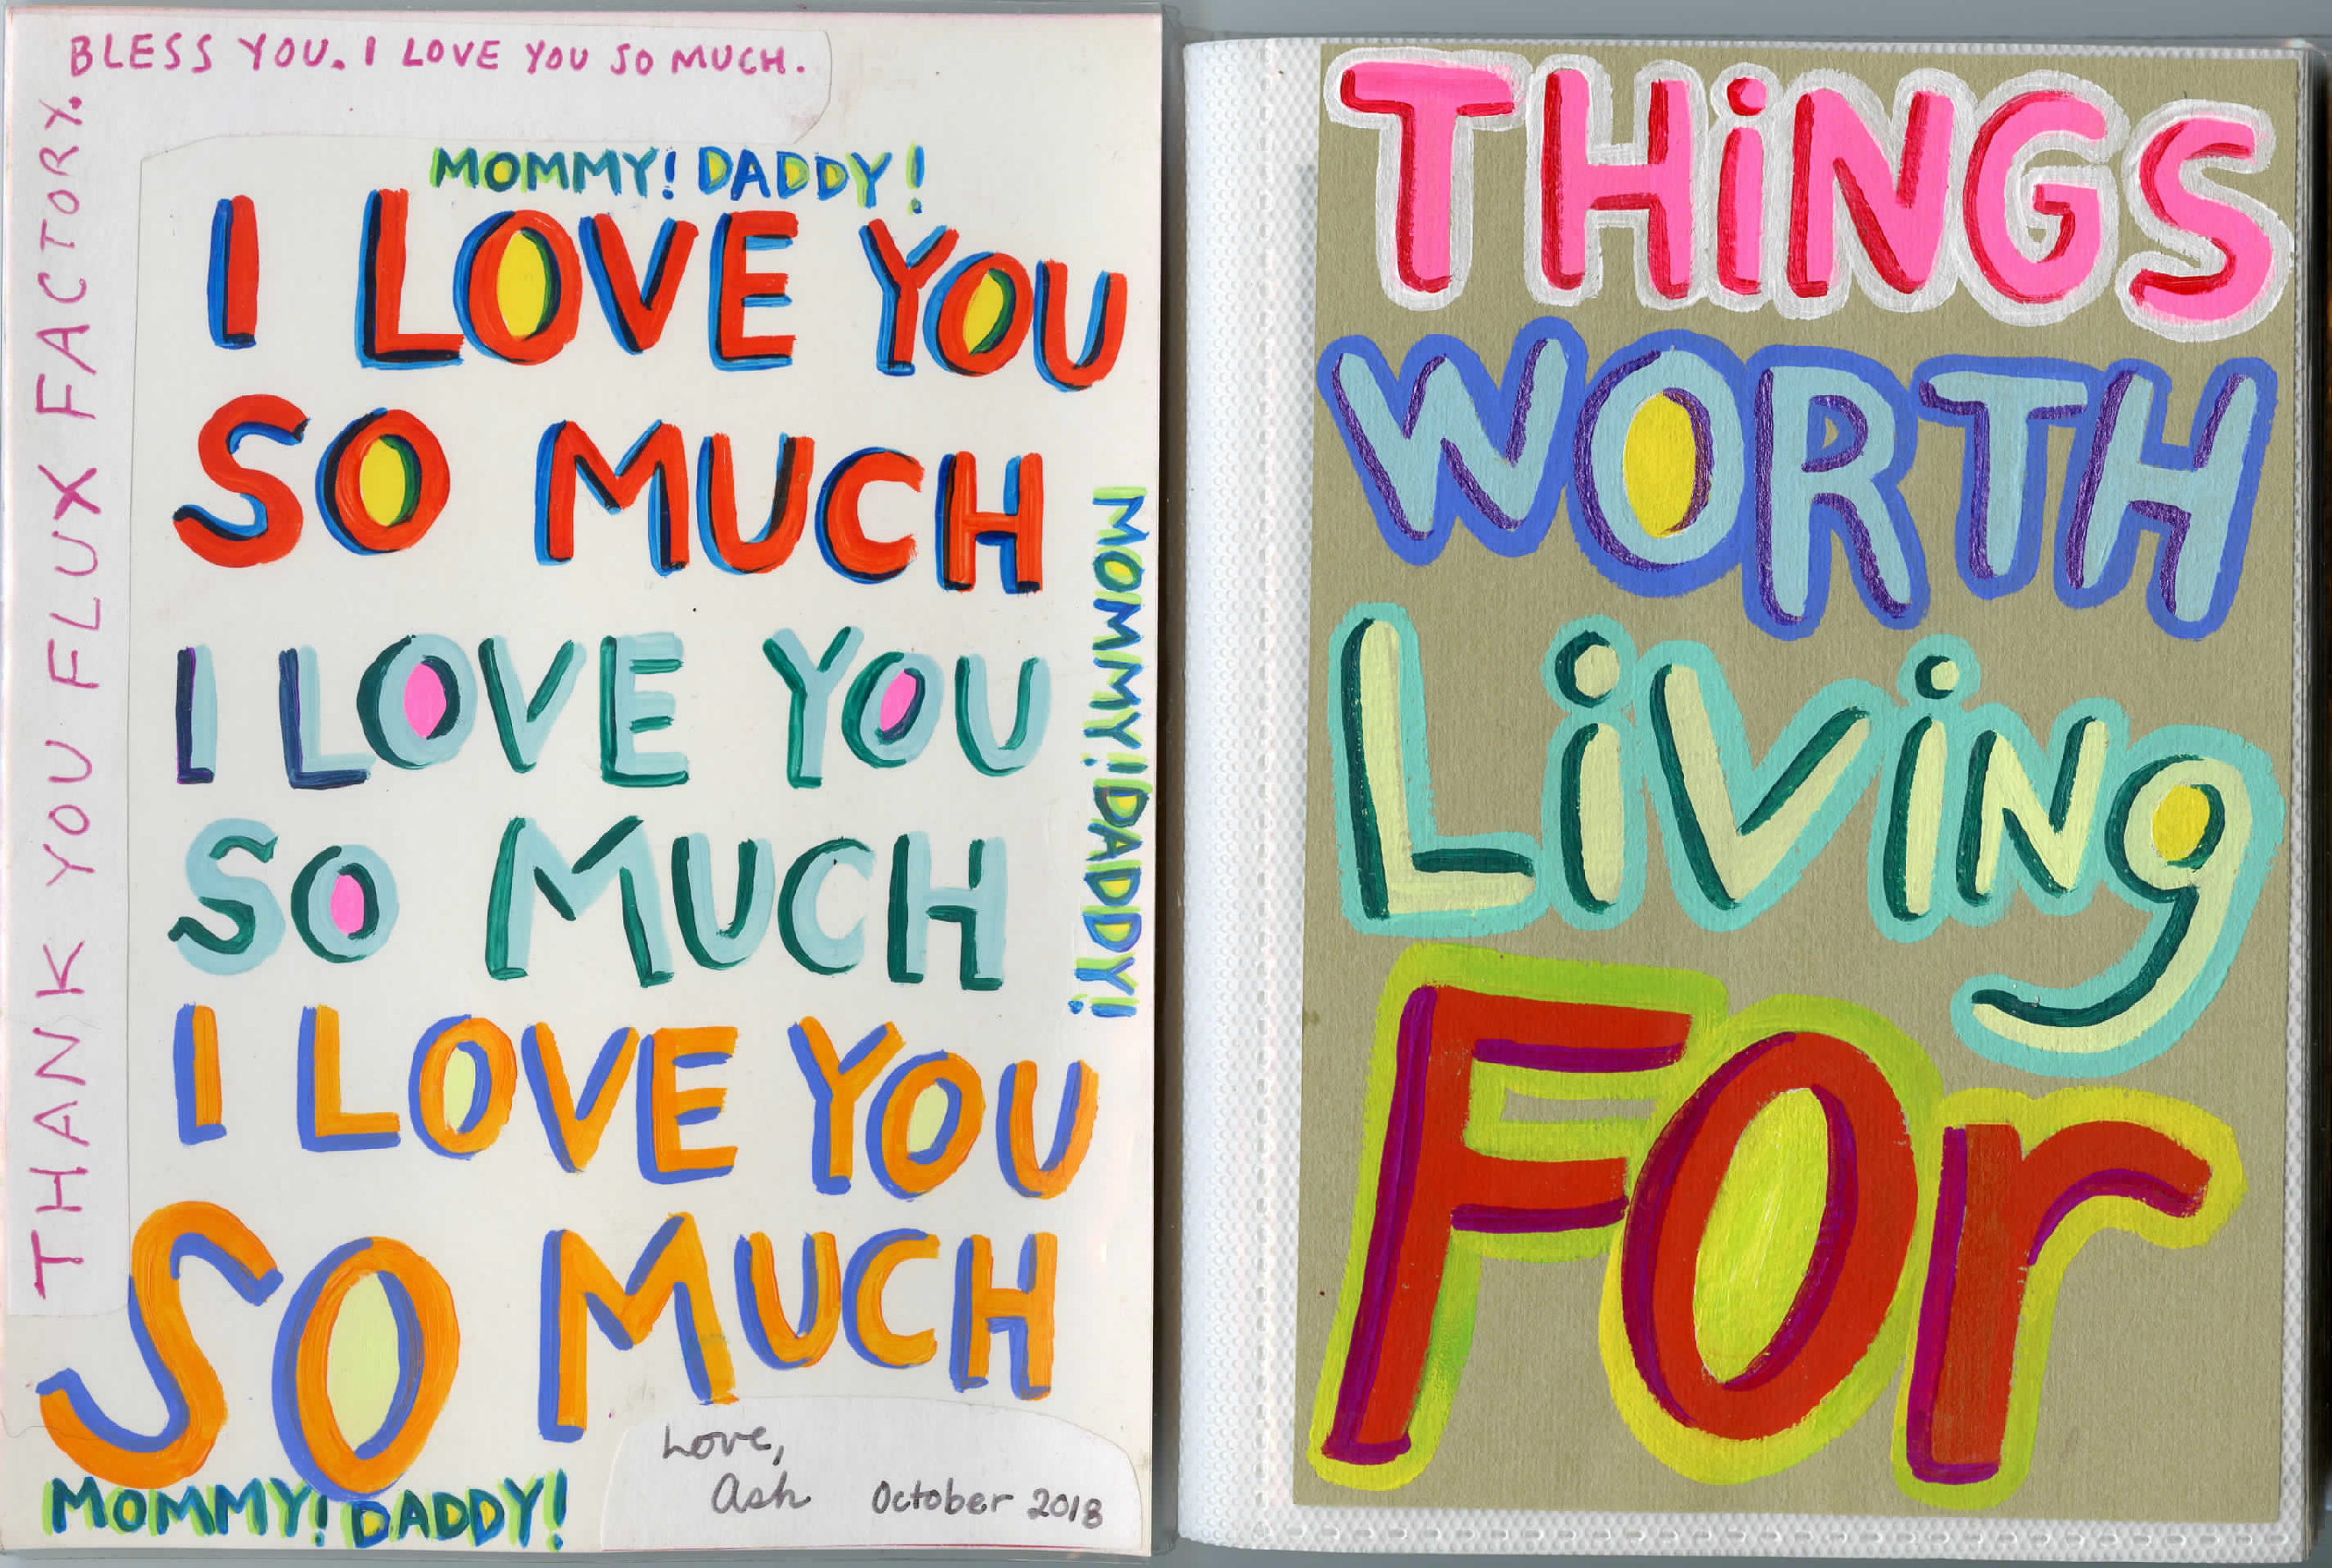 BLESS YOU. I LOVE YOU SO MUCH.
THANK YOU FLUX FACTORY.
MOMMY! DADDY!
I LOVE YOU
SO MUCH
I LOVE YOU
SO MUCH
I LOVE YOU
SO MUCH
MOMMY! DADDY!
MOMMY! DADDY!
Love,
Ash October 2018
THiNGS
WORTH
LiViNg
FOr